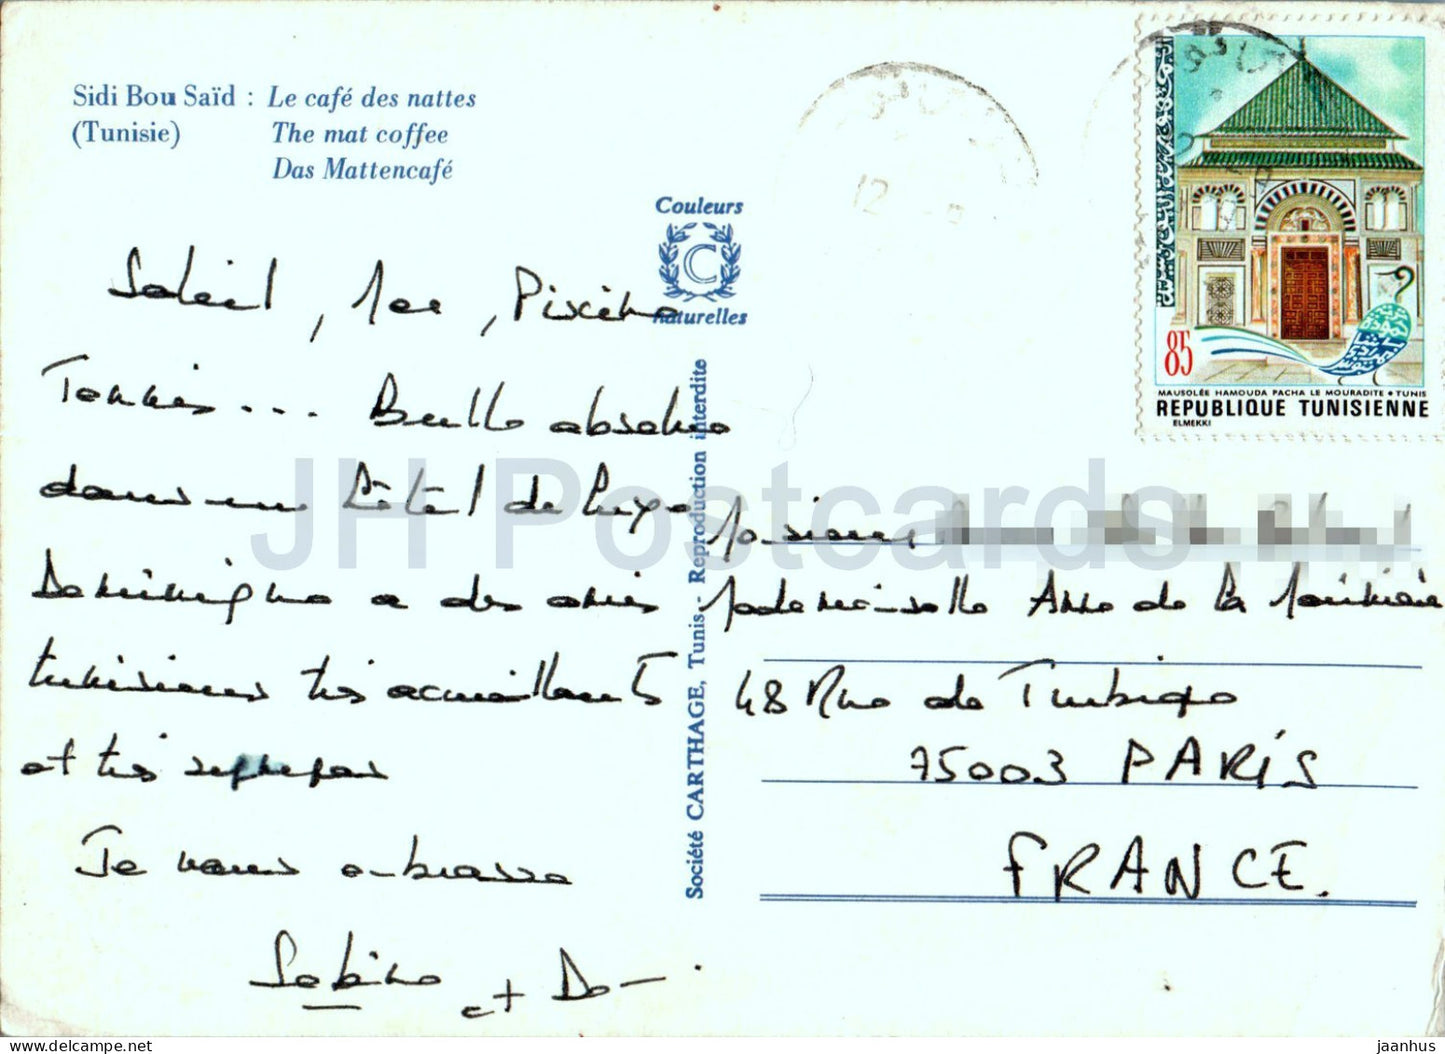 Sidi Bou Saïd : Le café des nattes
(Tunisie) The mat coffee
Das Mattencafé
Couleurs
C
naturelles
Soleil, Mer, Piscine
Tennis... Bulle absolue
dans un hôtel de luxe
Dominique a des amis
tunisiens très accueillants
et très sympas
Je vous embrasse
Sabine et Do
Société CARTHAGE, Tunis - Reproduction interdite
12
85
MAUSOLÉE HAMOUDA PACHA LE MOURADITE • TUNIS
REPUBLIQUE TUNISIENNE
ELMEKKI
Monsieur
Mademoiselle Anne de la
48 Rue de Turbigo
75003 PARIS
FRANCE.
JH Postcards
www.delcampe.net
jaanhus